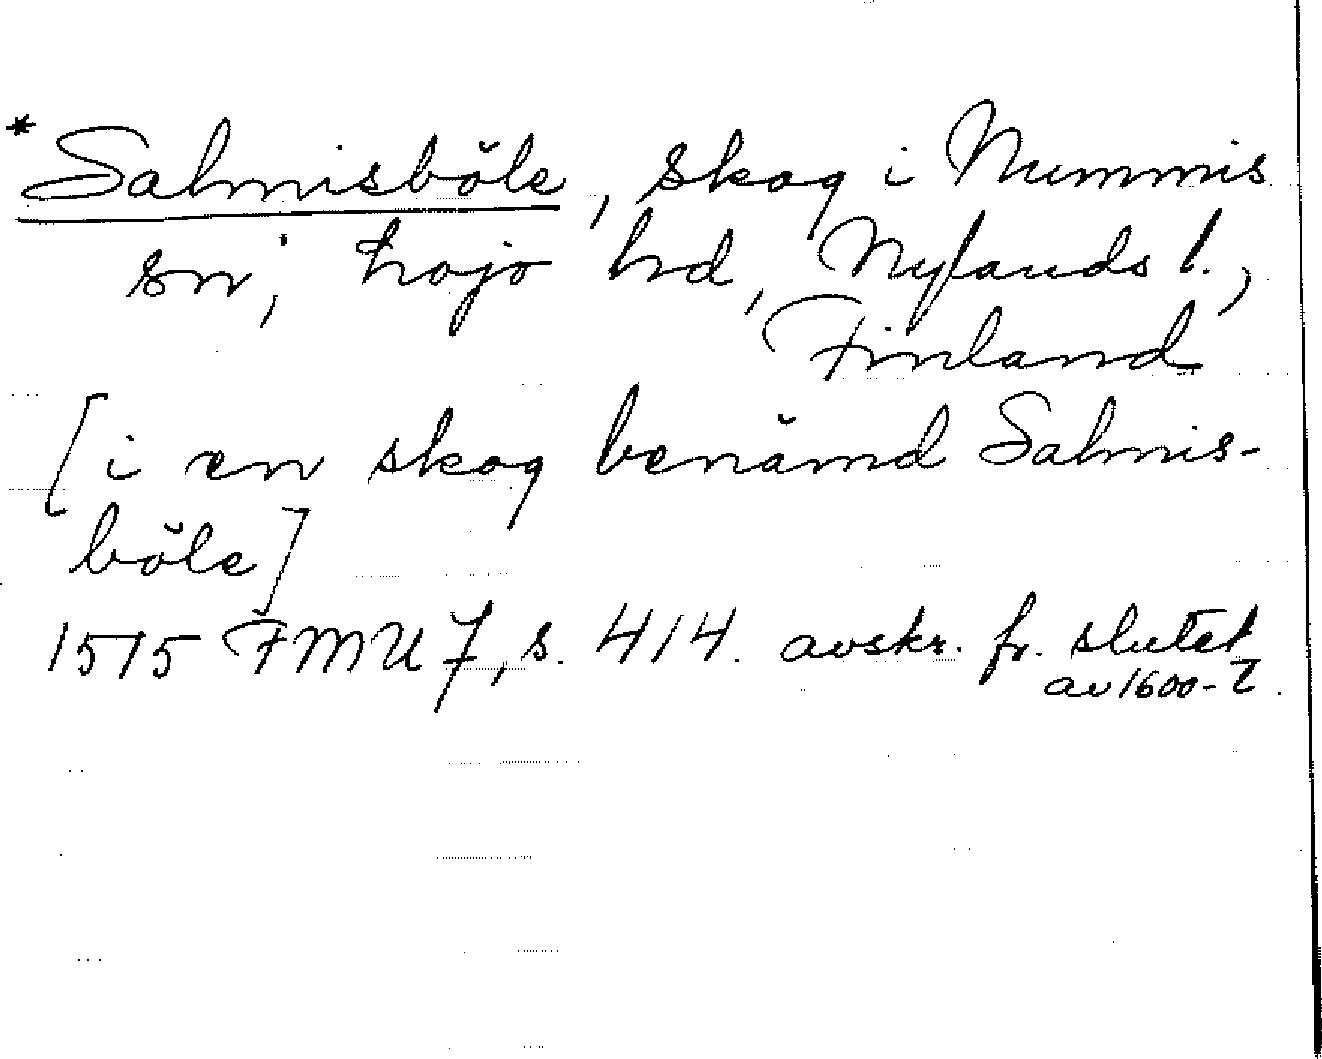 *Salmisböle, skog i Nummis
sn, Lojo hd, Nylands l.,
Finland
[i en skog benämd Salmis-
böle]
1515 FMU 7, s. 414. avskr. fr. slutet
av 1600-t.